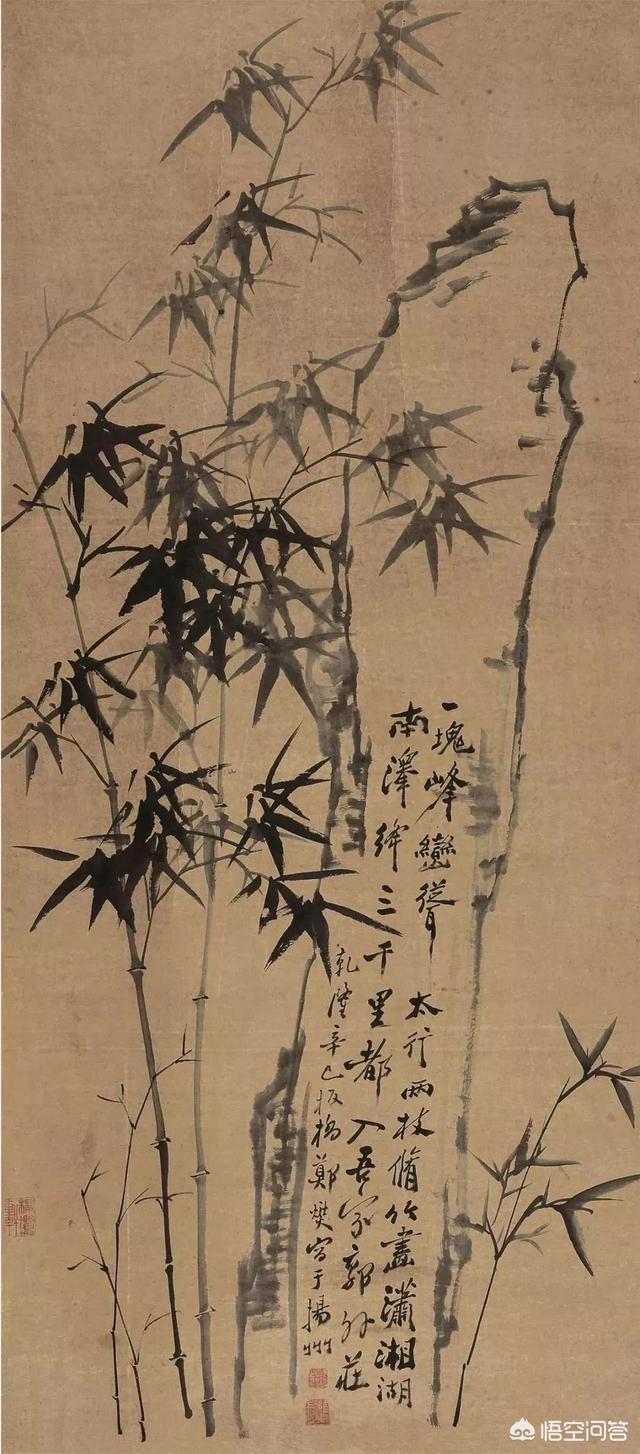 一塊峰巒聳太行兩枝脩竹畫瀟湘湖
南澤絳三千里都入吾家郭外莊
乾隆辛巳板橋鄭燮寫于揚州
悟空问答